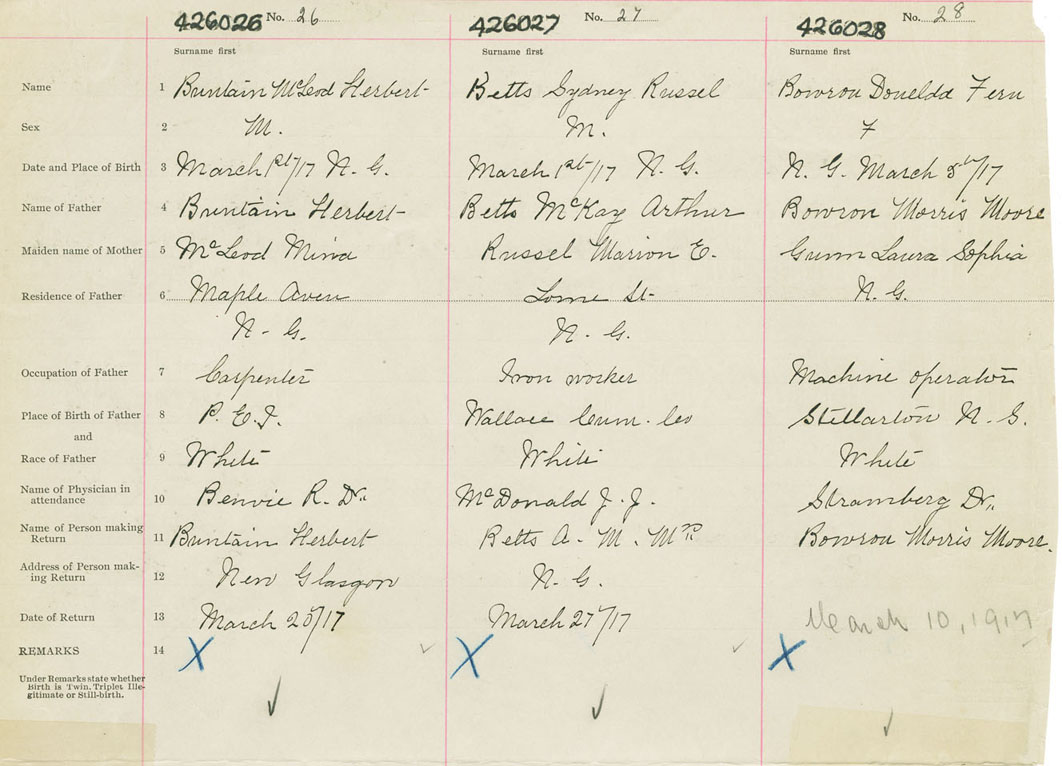 426026 No. 26 426027 No. 27 426028 No. 28
Surname first Surname first Surname first
Name 1 Buntain McLeod Herbert Betts Sydney Russel Bowron Donelda Fern
Sex 2 M. M. F
Date and Place of Birth 3 March 1st/17 N. G. March 1st/17 N. G. N. G. March 3rd/17
Name of Father 4 Buntain Herbert Betts McKay Arthur Bowron Morris Moore
Maiden name of Mother 5 McLeod Mina Russel Marion E. Gunn Laura Sophia
Residence of Father 6 Maple Aven Lorne St N. G.
N. G. N. G.
Occupation of Father 7 Carpenter Iron worker Machine operator
Place of Birth of Father 8 P. E. I. Wallace Cum. Co Stellarton N. S.
and
Race of Father 9 White White White
Name of Physician in
attendance 10 Benvie R. Dr. McDonald J. J. Stramberg Dr.
Name of Person making
Return 11 Buntain Herbert Betts A. M. Mrs Bowron Morris Moore.
Address of Person mak-
ing Return 12 New Glasgow N. G.
Date of Return 13 March 20/17 March 27/17 March 10, 1917
REMARKS 14 X X X
Under Remarks state whether
Birth is Twin, Triplet Ille-
gitimate or Still-birth.